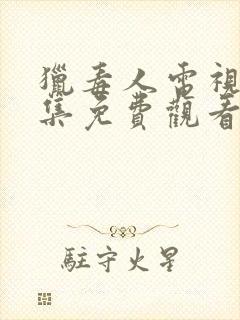 獵毒人電視
集免費觀看
駐守火星